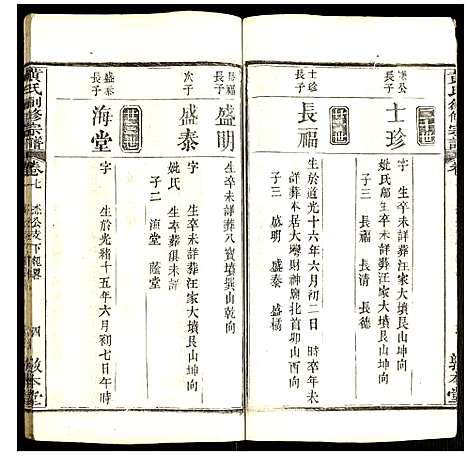 黃氏創修宗譜
卷
敦本堂
公
長子
士珍
字 生卒未詳葬汪家大墳艮山坤向
妣氏鄭 生卒未詳葬汪家大墳艮山坤向
子三 長福 長清 長德
士珍
長子
長福
生於道光十六年六月初二日 時卒年未
詳葬本居大灣財神廟北首卯山酉向
子三 盛明 盛泰 盛橘
長福
長子
盛明
生卒未詳葬八寶墳巽山乾向
次子
盛泰
字 生卒未詳葬汪家大墳艮山坤向
妣氏 生卒葬俱未詳
子二 海堂 蔭堂
盛泰
長子
海堂
字 生於光緒十五年六月初七日午時
黃氏創修宗譜
卷七
公支下
四
敦本堂